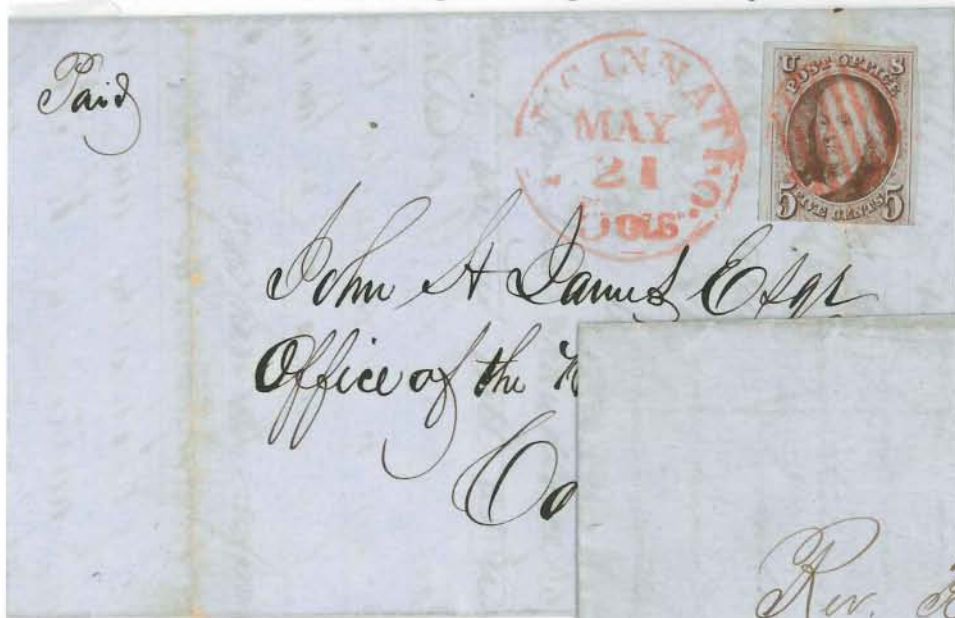 Paid
CINCINNATI O.
MAY
21
5 cts
U S
POST OFFICE
5 FIVE CENTS 5
John H James Esqr
Office of the
Co
Rev.